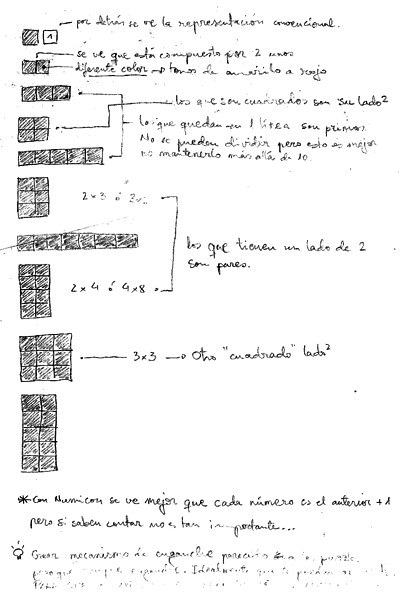 por detrás se ve la representación convencional.
1
se ve que está compuesto por 2 unos
diferente color → tonos de amarillo a rojo
los que son cuadrados son su lado²
los que quedan en 1 línea son primos
No se pueden dividir pero esto es mejor
no mantenerlo más allá de 10.
2x3 ó 3x
los que tienen un lado de 2
son pares.
2x4 ó 4x8
3x3 → Otro "cuadrado" lado²
* Con Numicon se ve mejor que cada número es el anterior +1
pero si saben contar no es tan importante...
Crear mecanismo de enganche parecido a los puzzle
para que siempre enganche. Idealmente que se puedan